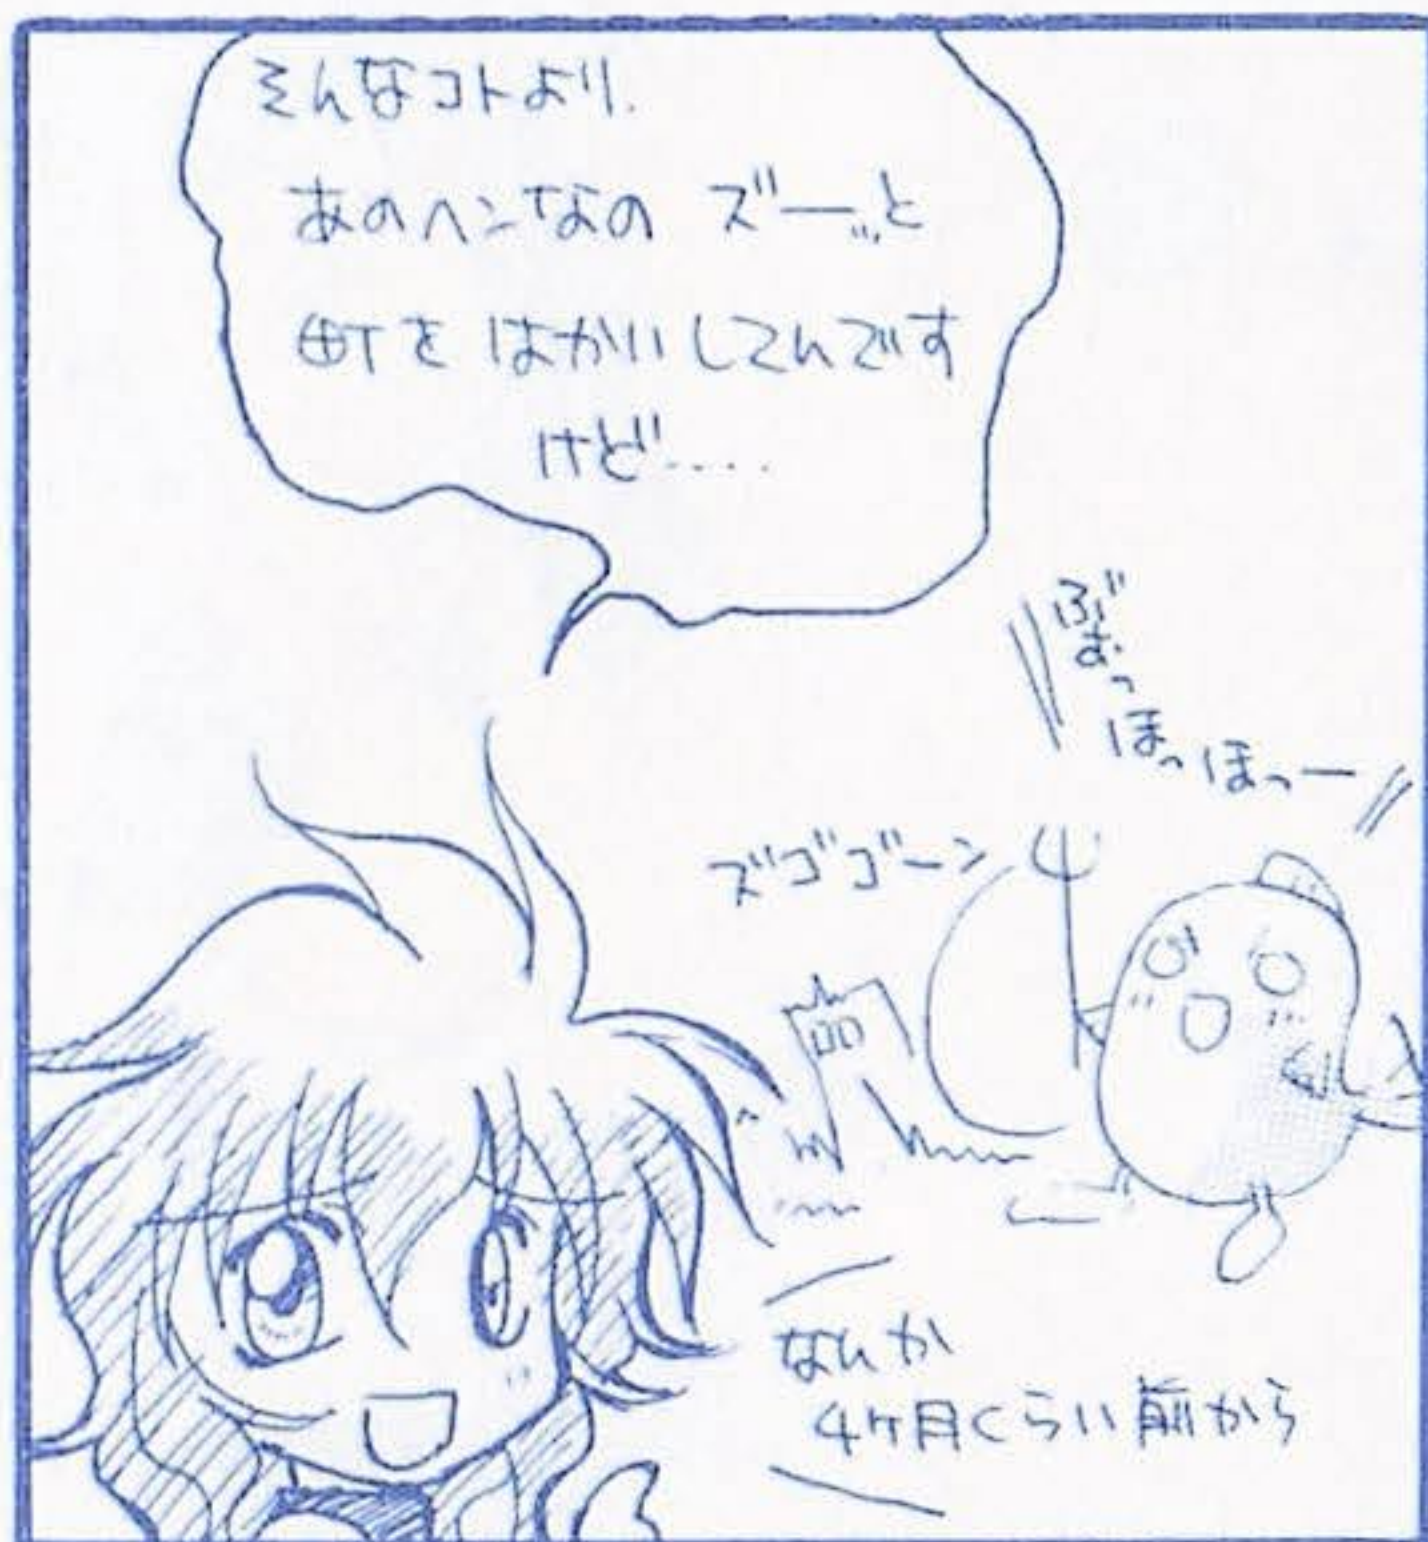 そんなコトより.
あのヘンなの ズーーっと
町を はかいしてんです
けど....
ぶおっほっほっー
ズゴゴゴーン
なんか
4ヶ月くらい前から